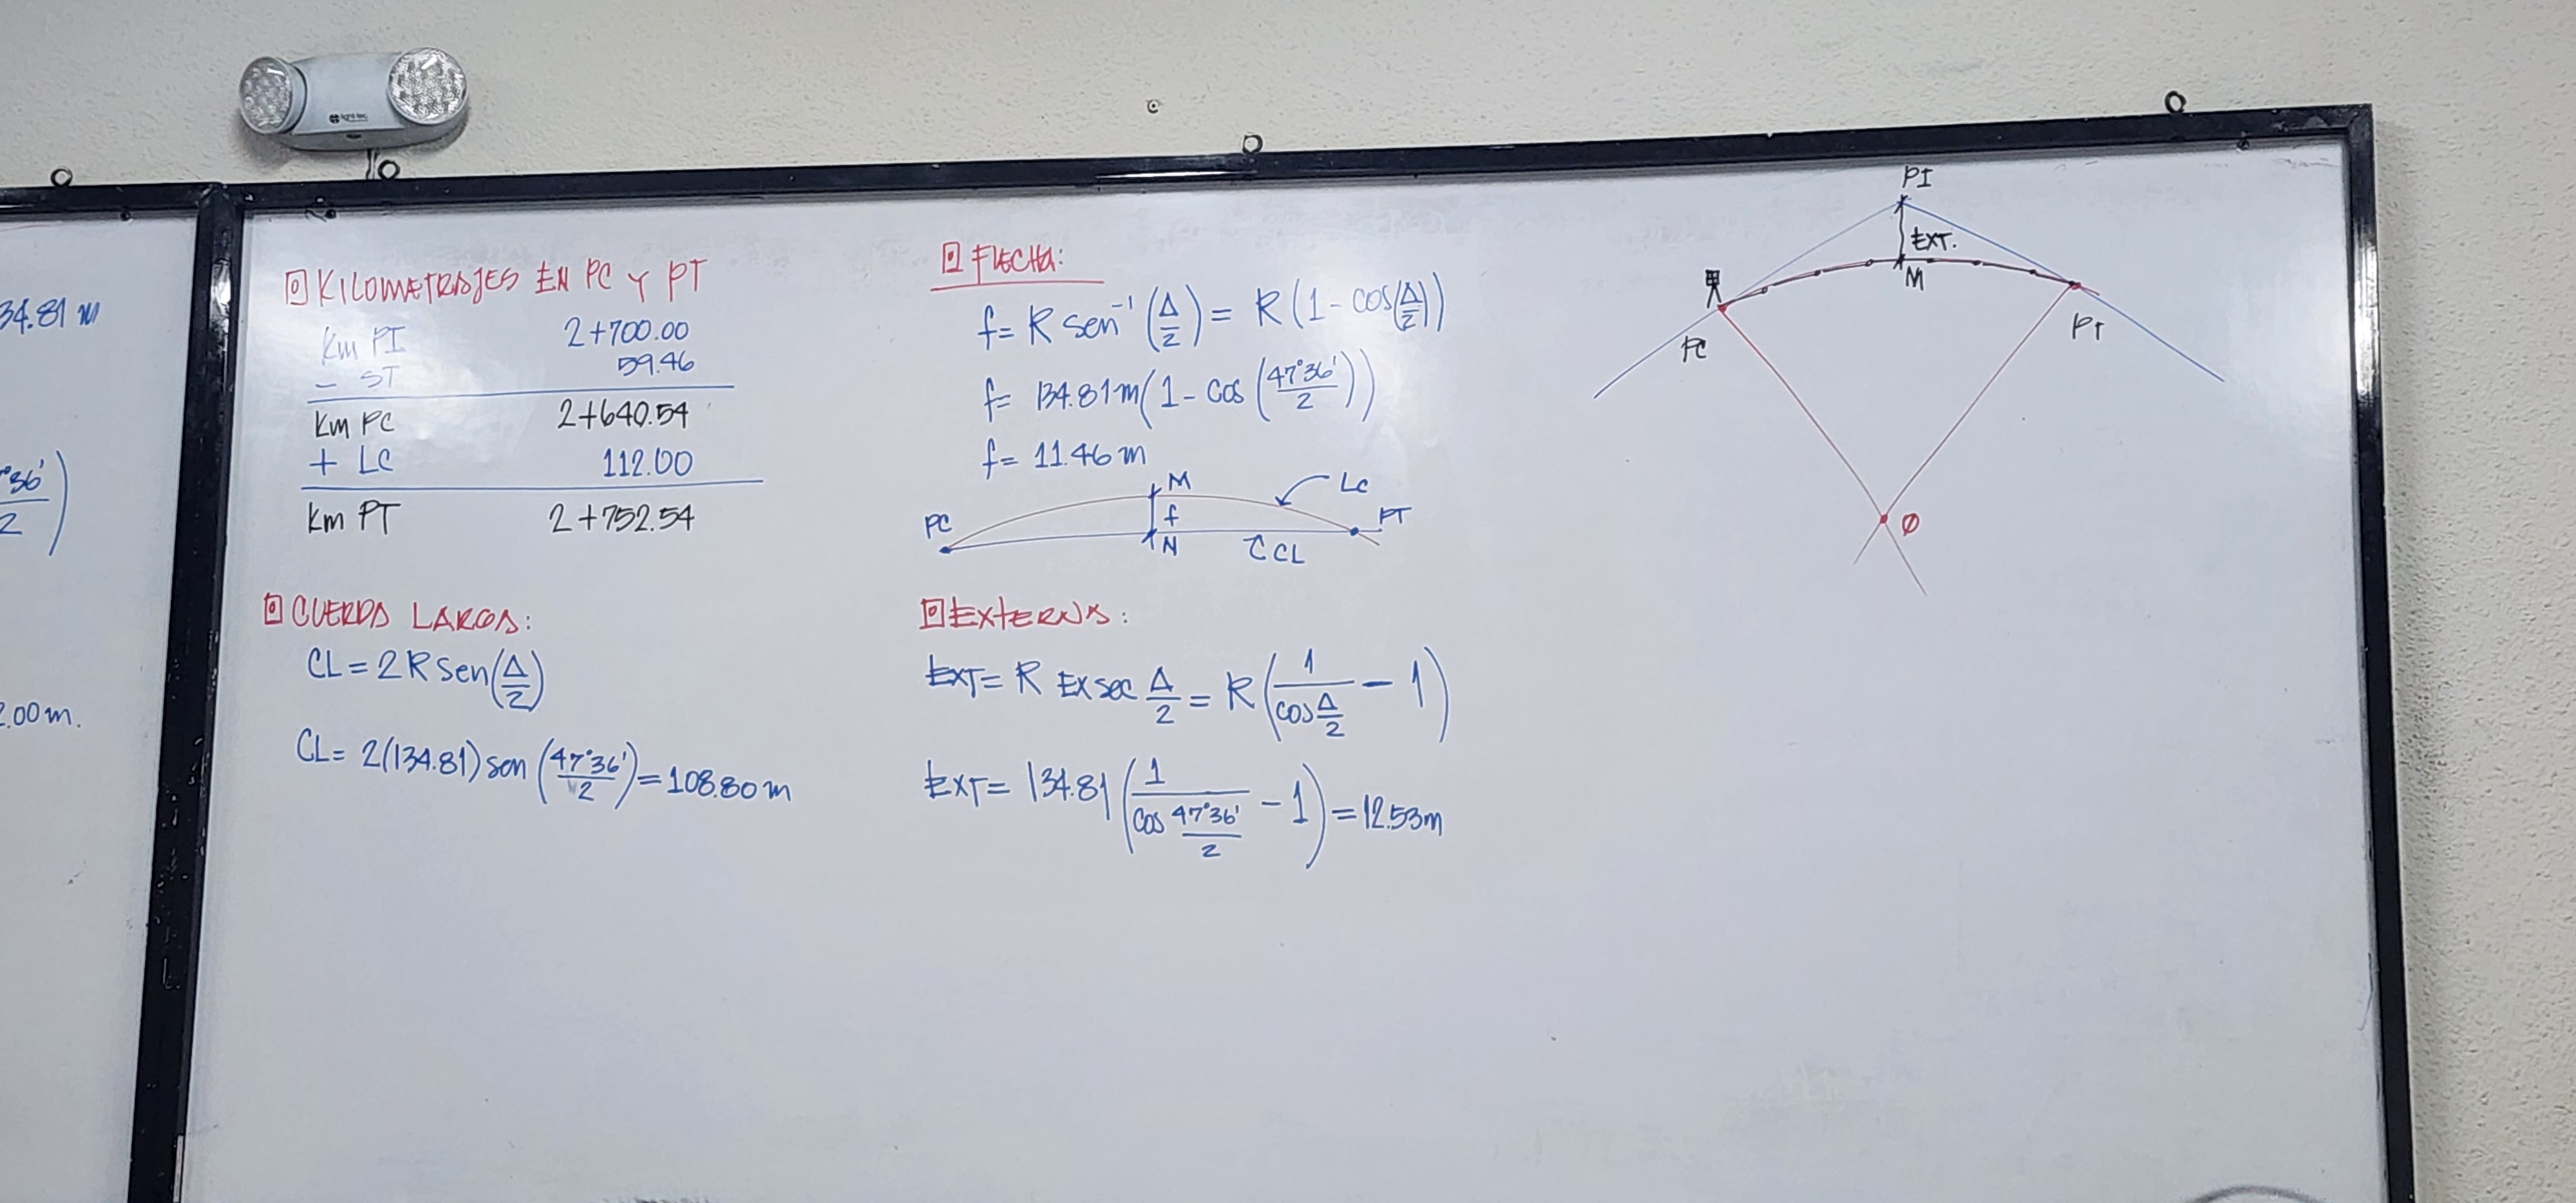 34.81 m
°36'
2
2.00 m.
KILOMETRAJES EN PC Y PT
Km PI 2+700.00
- ST 59.46
Km PC 2+640.54
+ LC 112.00
Km PT 2+752.54
CUERDA LARGA:
CL = 2 R sen(Δ/2)
CL = 2(134.81) sen (47°36'/2) = 108.80 m
FLECHA:
f = R sen⁻¹ (Δ/2) = R (1 - cos(Δ/2))
f = 134.81 m (1 - cos (47°36'/2))
f = 11.46 m
M
Lc
PC
f
PT
N
CL
EXTERNA:
EXT = R EXsec Δ/2 = R (1/cos Δ/2 - 1)
EXT = 134.81 (1/cos 47°36'/2 - 1) = 12.53 m
PI
EXT.
M
PC
PT
Ø